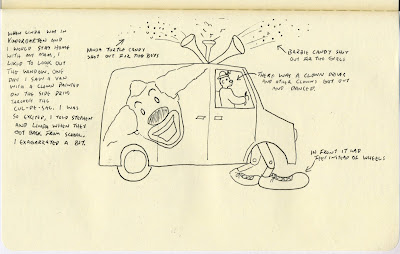 WHEN LINDA WAS IN
KINDERGARTEN AND
I WOULD STAY HOME
WITH OUR MOM, I
LIKED TO LOOK OUT
THE WINDOW. ONE
DAY I SAW A VAN
WITH A CLOWN PAINTED
ON THE SIDE DRIVE
THROUGH THE
CUL-DE-SAC. I WAS
SO EXCITED, I TOLD STEPHEN
AND LINDA WHEN THEY
GOT BACK FROM SCHOOL.
I EXAGERRATED A BIT.
NINJA TURTLE CANDY
SHOT OUT FOR THE BOYS
BARBIE CANDY SHOT
OUT FOR THE GIRLS
THERE WAS A CLOWN DRIVER
AND OTHER CLOWNS GOT OUT
AND DANCED.
IN FRONT IT HAD
FEET INSTEAD OF WHEELS